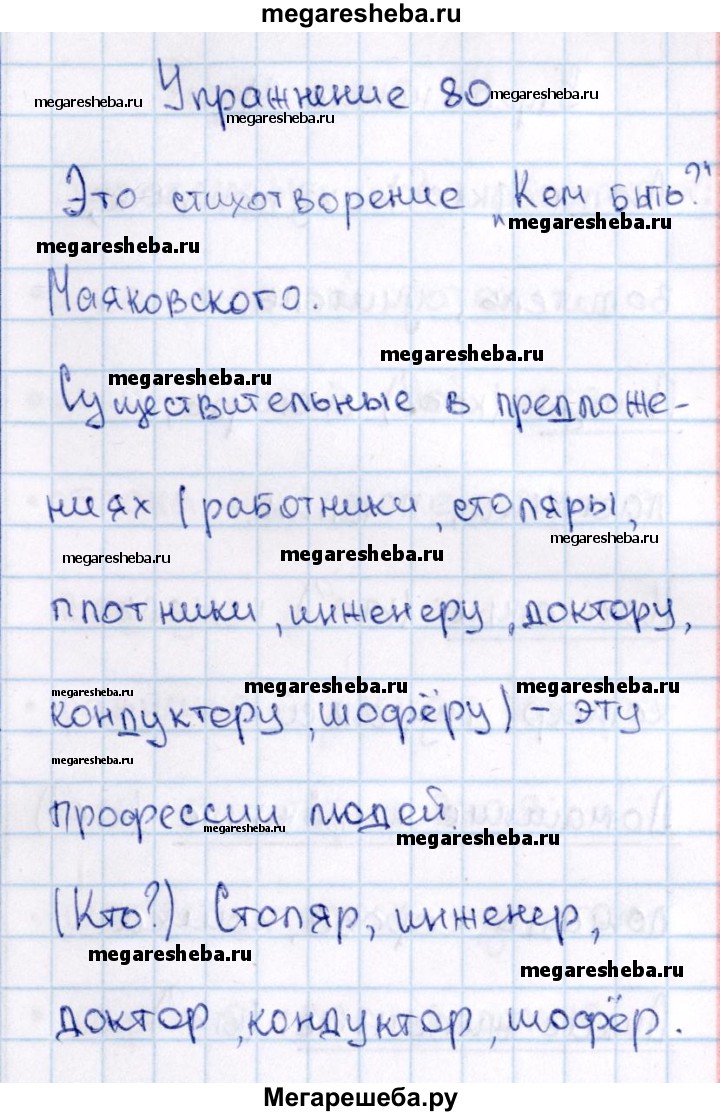 megaresheba.ru
Упражнение 80
megaresheba.ru
megaresheba.ru
megaresheba.ru
Это стихотворение „Кем быть?"
megaresheba.ru
megaresheba.ru
Маяковского.
megaresheba.ru
megaresheba.ru
Существительные в предложе-
ниях (работники, столяры,
megaresheba.ru
megaresheba.ru
megaresheba.ru
плотники, инженеру, доктору,
megaresheba.ru
megaresheba.ru
megaresheba.ru
кондуктору, шофёру) - эту
megaresheba.ru
профессии людей.
megaresheba.ru
megaresheba.ru
(Кто?) Столяр, инженер,
megaresheba.ru
megaresheba.ru
доктор, кондуктор, шофёр.
Мегарешеба.ру